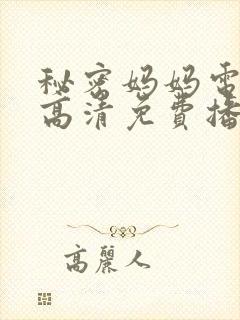 秘密妈妈电
高清免费播
高麗人